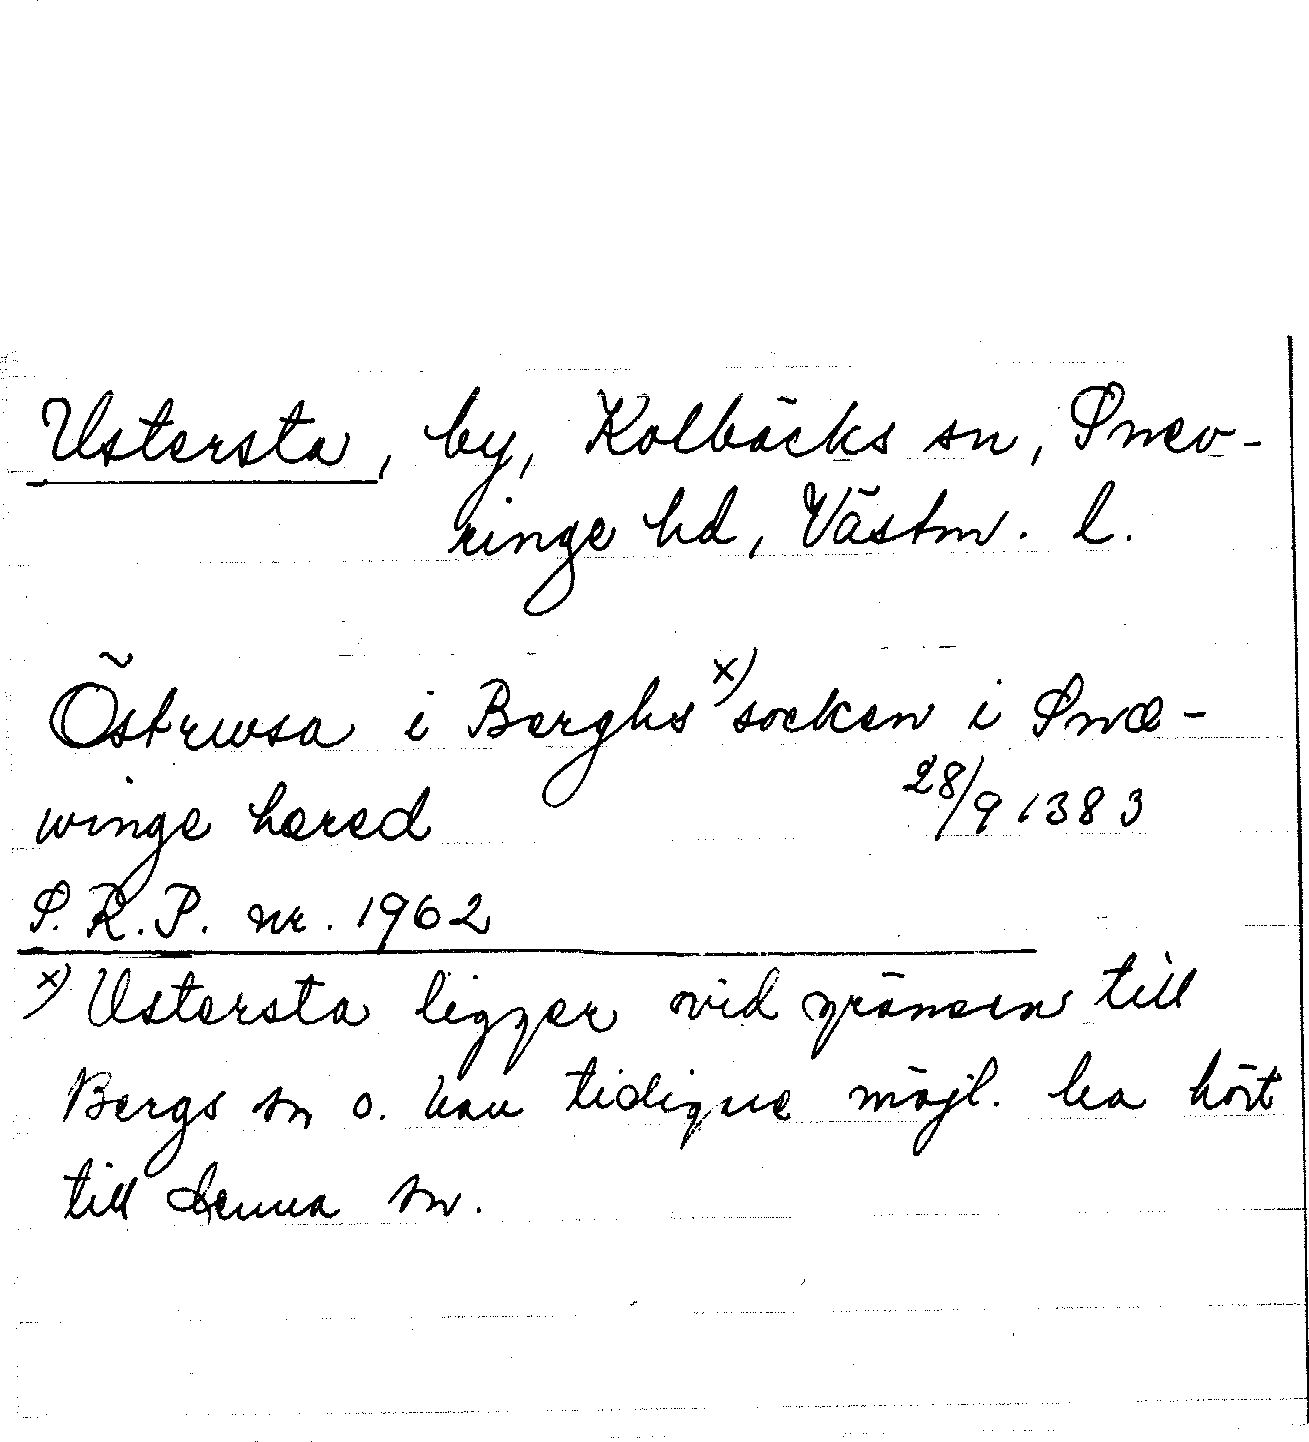 Ustersta, by, Kolbäcks sn, Snev-
ringe hd, Västm. l.
Östrwsa i Berghs x) socken i Snæ-
winge hæred 28/9 1383
S.R.P. nr. 1962
x) Ustersta ligger vid gränsen till
Bergs sn o. kan tidigue möjl. ha hört
till denna sn.